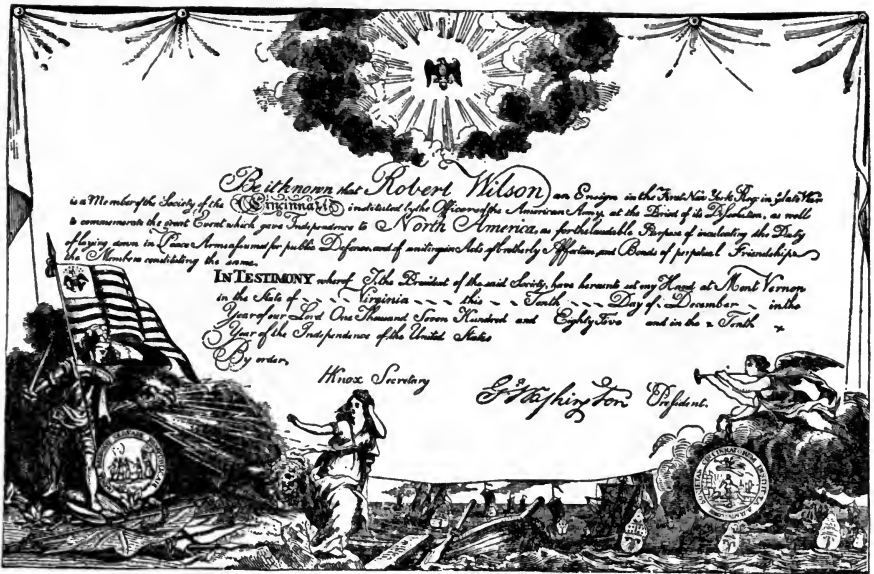 Be it known that Robert Wilson an Ensign in the First New York Reg: in ye late War
is a Member of the Society of the Cincinnati instituted by the Officers of the American Army, at the Period of its Dissolution, as well
to commemorate the great Event which gave Independence to North America, as for the laudable Purpose of inculcating the Duty
of laying down in Peace Arms assumed for public Defence, and of uniting in Acts of brotherly Affection, and Bonds of perpetual Friendship
the Members constituting the same.
IN TESTIMONY whereof I, the President of the said Society, have hereunto set my Hand at Mont Vernon
in the State of Virginia this Tenth Day of December in the
Year of our Lord One Thousand Seven Hundred and Eighty Five and in the Tenth
Year of the Independence of the United States
By order,
HKnox Secretary
Go Washington President.